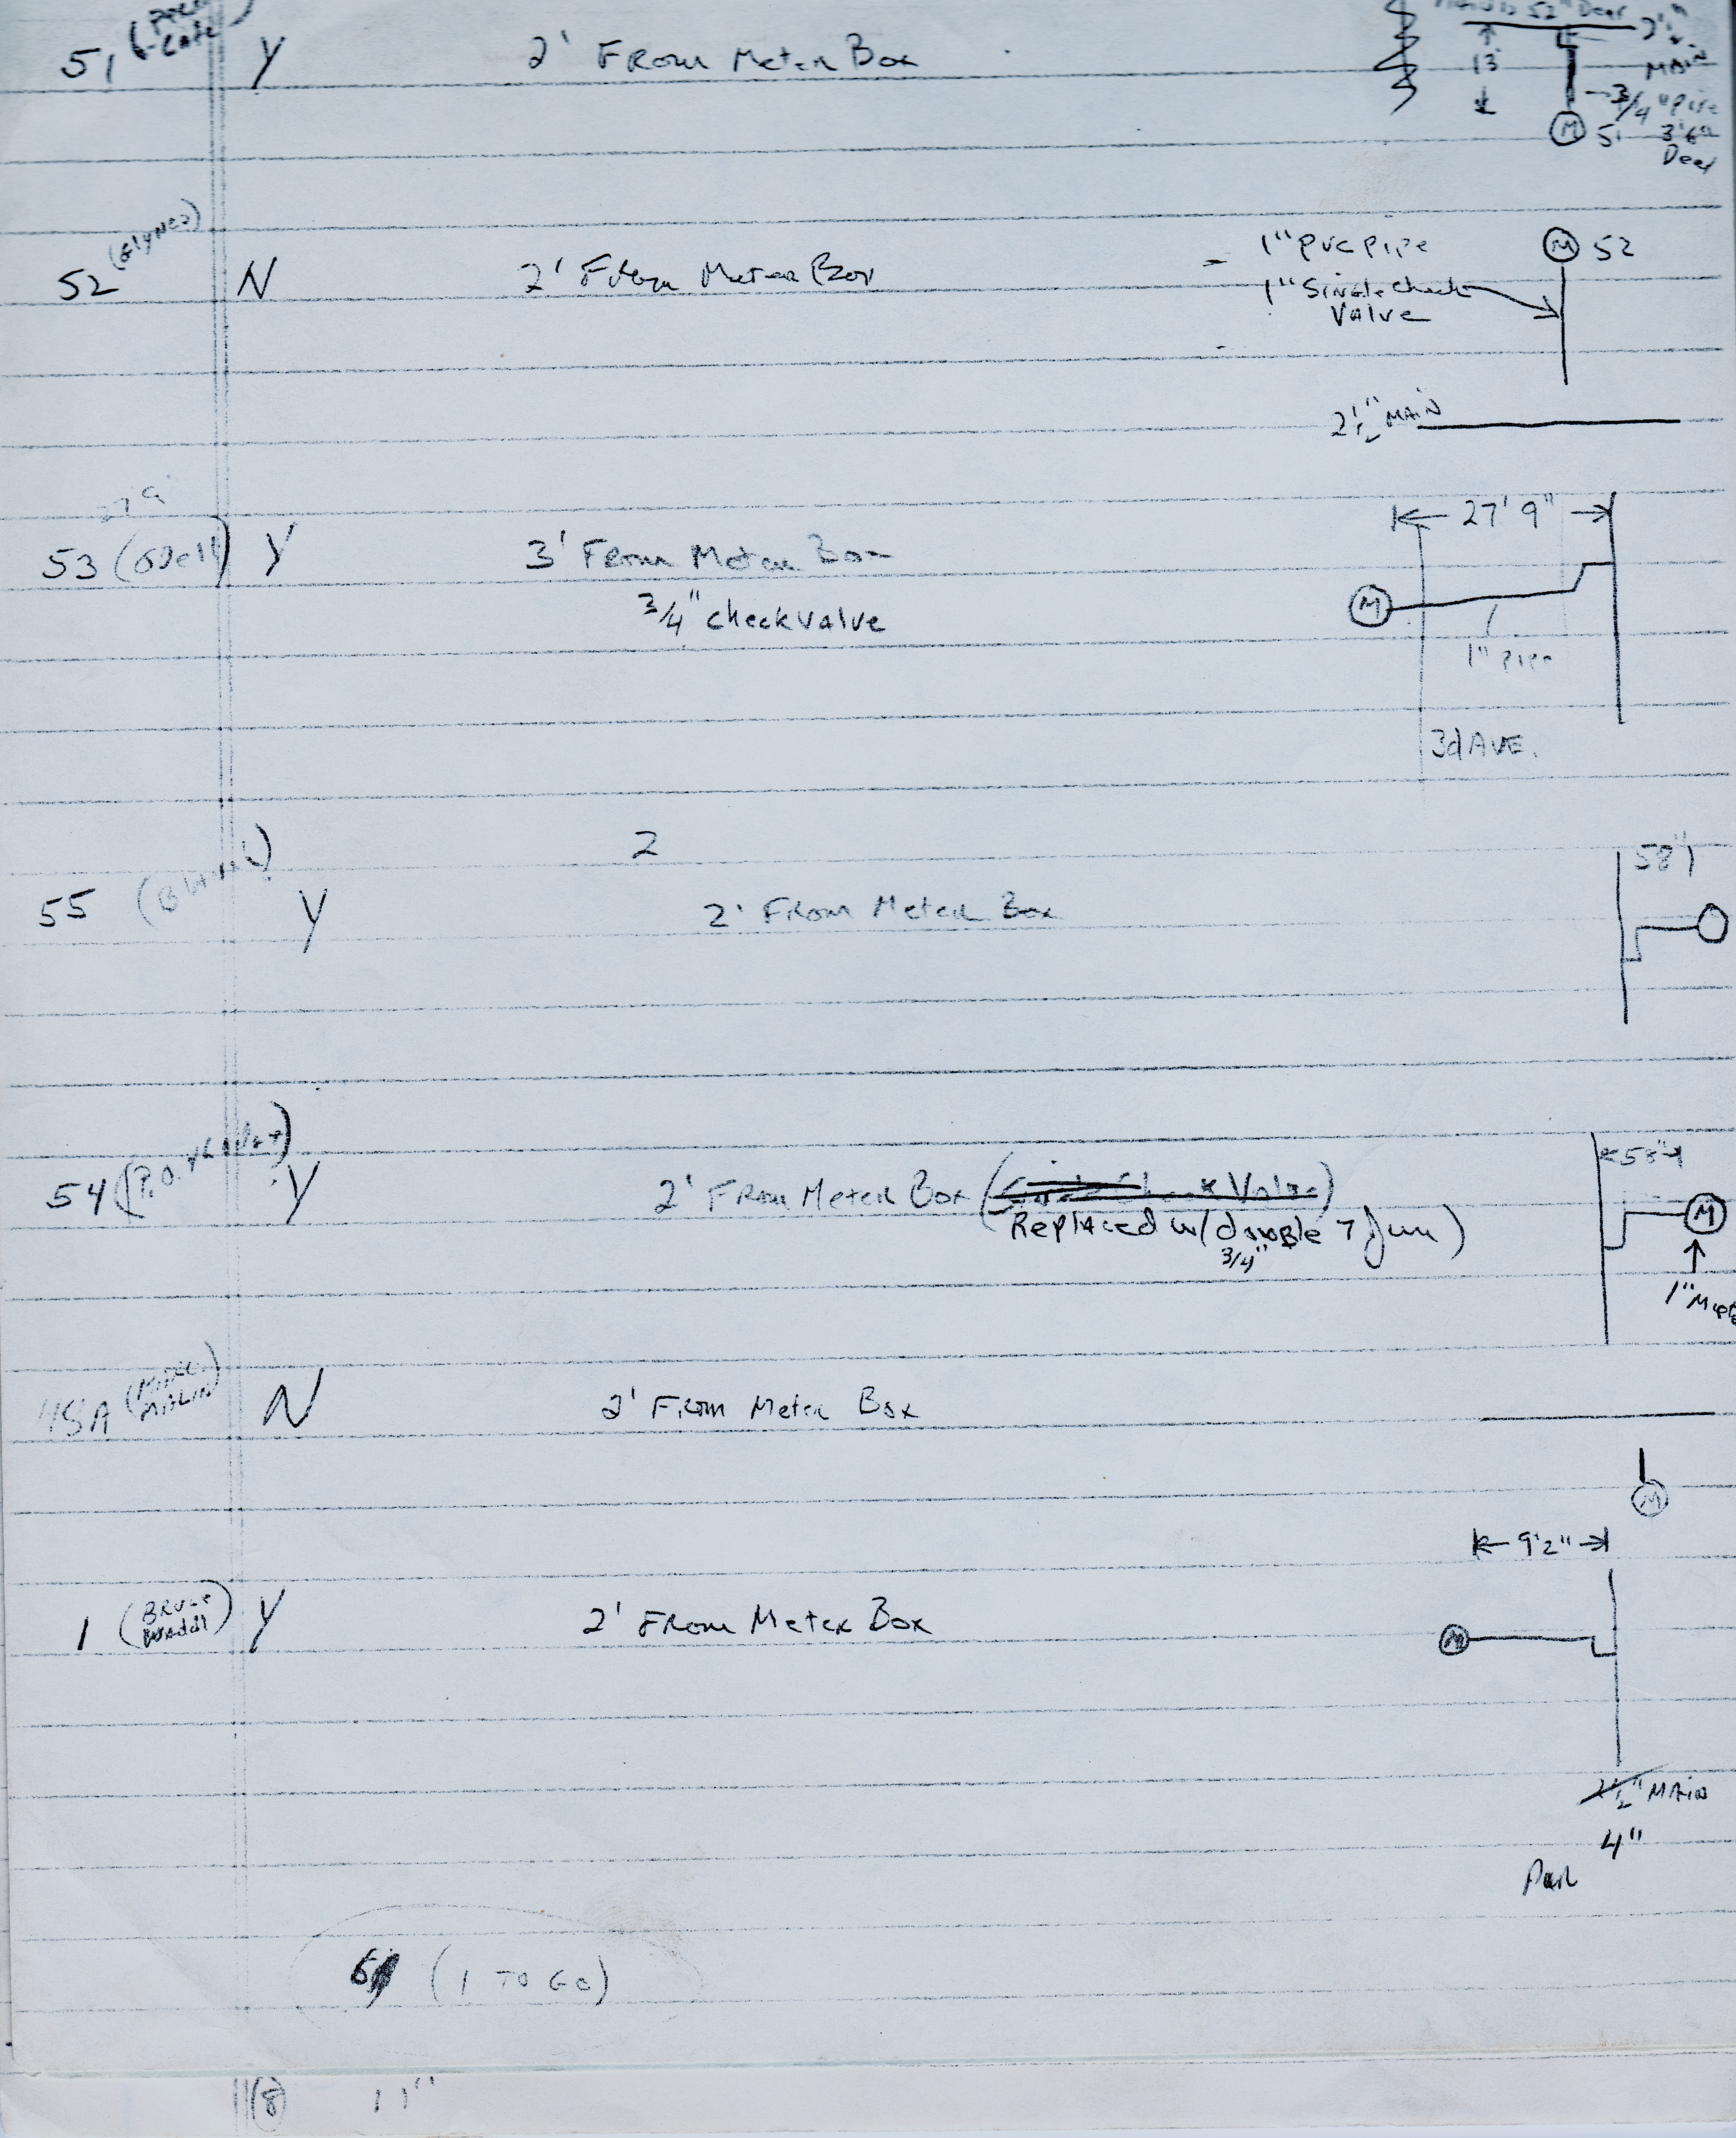 51
Y
2' From Meter Box
52" Deep
13'
2½" MAIN
3/4" Pipe
M 51
3'6" Deep
52
N
2' From Meter Box
1" PVC Pipe
1" Single Check Valve
M 52
2½" MAIN
27' 9"
53 (Odell) Y
3' From Meter Box
3/4" check valve
27' 9"
M
1" Pipe
3d AVE.
2
55
Y
2' From Meter Box
58"
54
Y
2' From Meter Box (Single Check Valve)
Replaced w/ double 7 Jun)
3/4"
58"
M
1"
45A (MARC MALIN) N
2' From Meter Box
M
9'2"
1 (BRUCE Waddl) Y
2' From Meter Box
M
2½" MAIN
4"
(1 TO GO)
(8) 11"